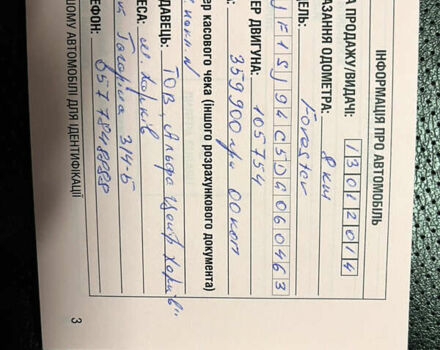 ІНФОРМАЦІЯ ПРО АВТОМОБІЛЬ
А ПРОДАЖУ/ВИДАЧІ: 13012014
КАЗАННЯ ОДОМЕТРА: 8 км
ДЕЛЬ: Forester
JF1SJ94C5DG060463
ЕР ДВИГУНА: 105754
359900 грн 00 коп
ер касового чека (іншого розрахункового документа)
ДАВЕЦЬ: ТОВ „Альфа Центр Харків"
ЕСА: м. Харків
Гагаріна 314-Б
ЕФОН: 0577848888
ШОМУ АВТОМОБІЛІ ДЛЯ ІДЕНТИФІКАЦІЇ
3